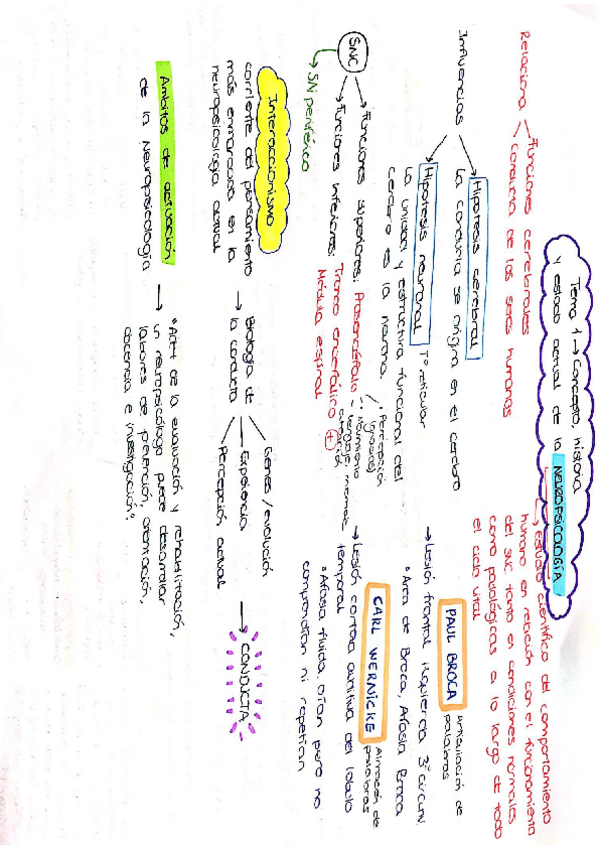 Tema 1 → Concepto, historia
y estado actual de la NEUROPSICOLOGÍA
→ estudio científico del comportamiento
humano en relación con el funcionamiento
del SNC tanto en condiciones normales
como patológicas a lo largo de todo
el ciclo vital
Relaciona
Funciones cerebrales
conducta de los seres humanos
Influencias
Hipótesis cerebral
La conducta se origina en el cerebro
Hipótesis neuronal Tª reticular
La unidad y estructura funcional del
cerebro es la neurona.
PAUL BROCA articulación de
palabras
→ Lesión frontal izquierda 3ª circunv.
* Área de Broca, Afasia Broca
CARL WERNICKE Almacén de
palabras
→ Lesión corteza auditiva del lóbulo
temporal
* Afasia fluida, oían pero no
comprendían ni repetían
SNC
→ Funciones superiores: Prosencéfalo
- Percepción
(gnosias)
- Movimiento
- Lenguaje, memoria
→ Funciones inferiores: Tronco encefálico +
Médula espinal
→ SN periférico
Interaccionismo
corriente del pensamiento
más enmarcada en la
neuropsicología actual
→ Biología de
la conducta
Genes / evolución
Experiencia
Percepción actual
→ CONDUCTA
Ámbitos de actuación
de la Neuropsicología
→ "Aparte de la evaluación y rehabilitación,
un neuropsicólogo puede desarrollar
labores de prevención, orientación,
docencia e investigación".